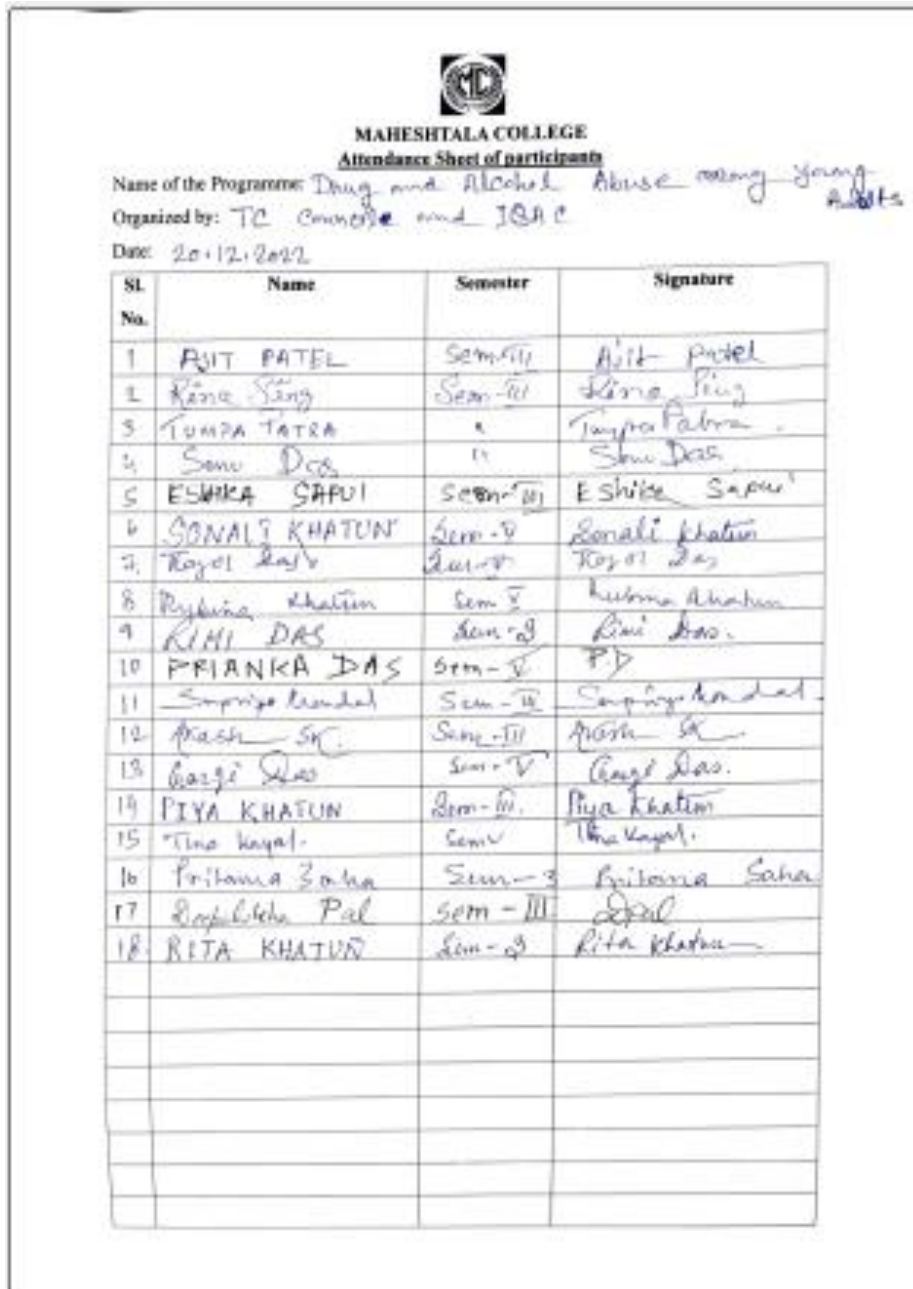 MC
MAHESHTALA COLLEGE
Attendance Sheet of participants
Name of the Programme: Drug and Alcohol Abuse among young
Adults
Organized by: TC Council and IQAC
Date: 20.12.2022
Sl. No. Name Semester Signature
1 AJIT PATEL Sem-III Ajit Patel
2 Rina Sing Sem-III Rina Sing
3 TUMPA TATRA " Tumpa
4 Sonu Das " Sonu Das
5 ESHIKA SAPUI Sem-III Eshika Sapui
6 SONALI KHATUN Sem-V Sonali Khatun
7. Kajol Das Sem-V Kajol Das
8 Khatun Sem V Khatun
9 RIMI DAS Sem-3 Rimi Das.
10 PRIANKA DAS Sem-V P.D
11 Supriyo Mondal Sem-III Supriyo Mondal
12 Akash SK. Sem-III Akash SK
13 Gargi Das Sem-V Gargi Das.
14 PIYA KHATUN Sem-III. Piya Khatun
15 Tina Kayal. Sem V Tina Kayal.
16 Pritama Saha Sem-3 Pritama Saha
17 Pal Sem-III DPal
18. RITA KHATUN Sem-3 Rita Khatun